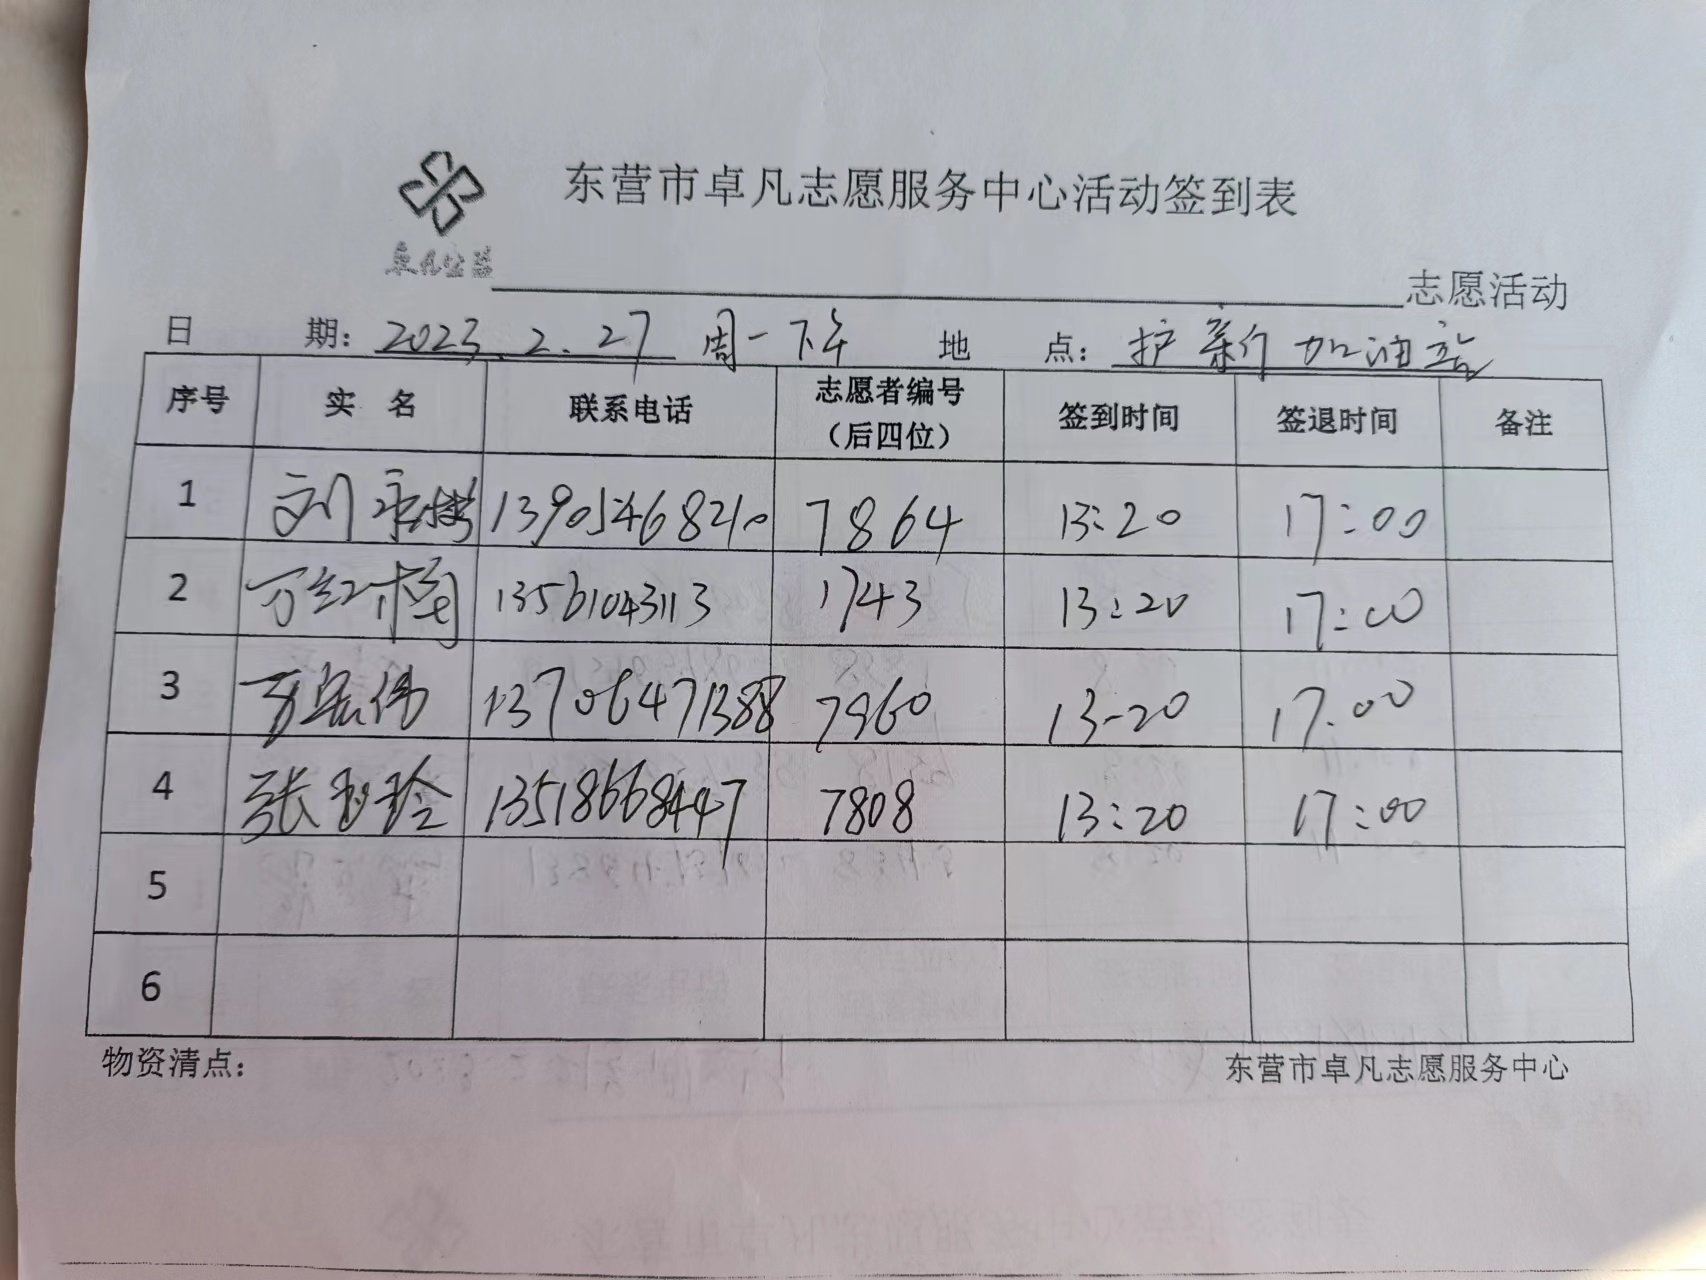 东营市卓凡志愿服务中心活动签到表
卓凡公益
志愿活动
日 期: 2023.2.27 周一下午 地 点: 护新加油站
序号 实 名 联系电话 志愿者编号（后四位） 签到时间 签退时间 备注
1 刘 13905468210 7864 13:20 17:00
2 万红梅 13561043113 1743 13:20 17:00
3 宏伟 13706471388 7960 13-20 17:00
4 张玉玲 13518668447 7808 13:20 17:00
5
6
物资清点:
东营市卓凡志愿服务中心